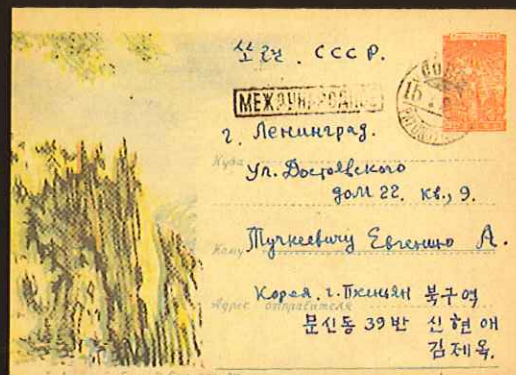 쏘련. СССР.
МЕЖДУНАРОДНОЕ
г. Ленинград.
Куда
ул. Достоевского
дом 22. кв., 9.
Кому Тункеевичу Евгению А.
Адрес отправителя Корея. г. Пхеньян 북구역
문신동 39반 신현애
김제옥.